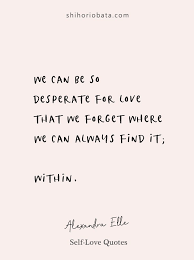 shihoriobata.com
WE CAN BE SO
DESPERATE FOR LOVE
THAT WE FORGET WHERE
WE CAN ALWAYS FIND IT;
WITHIN.
Alexandra Elle
Self-Love Quotes